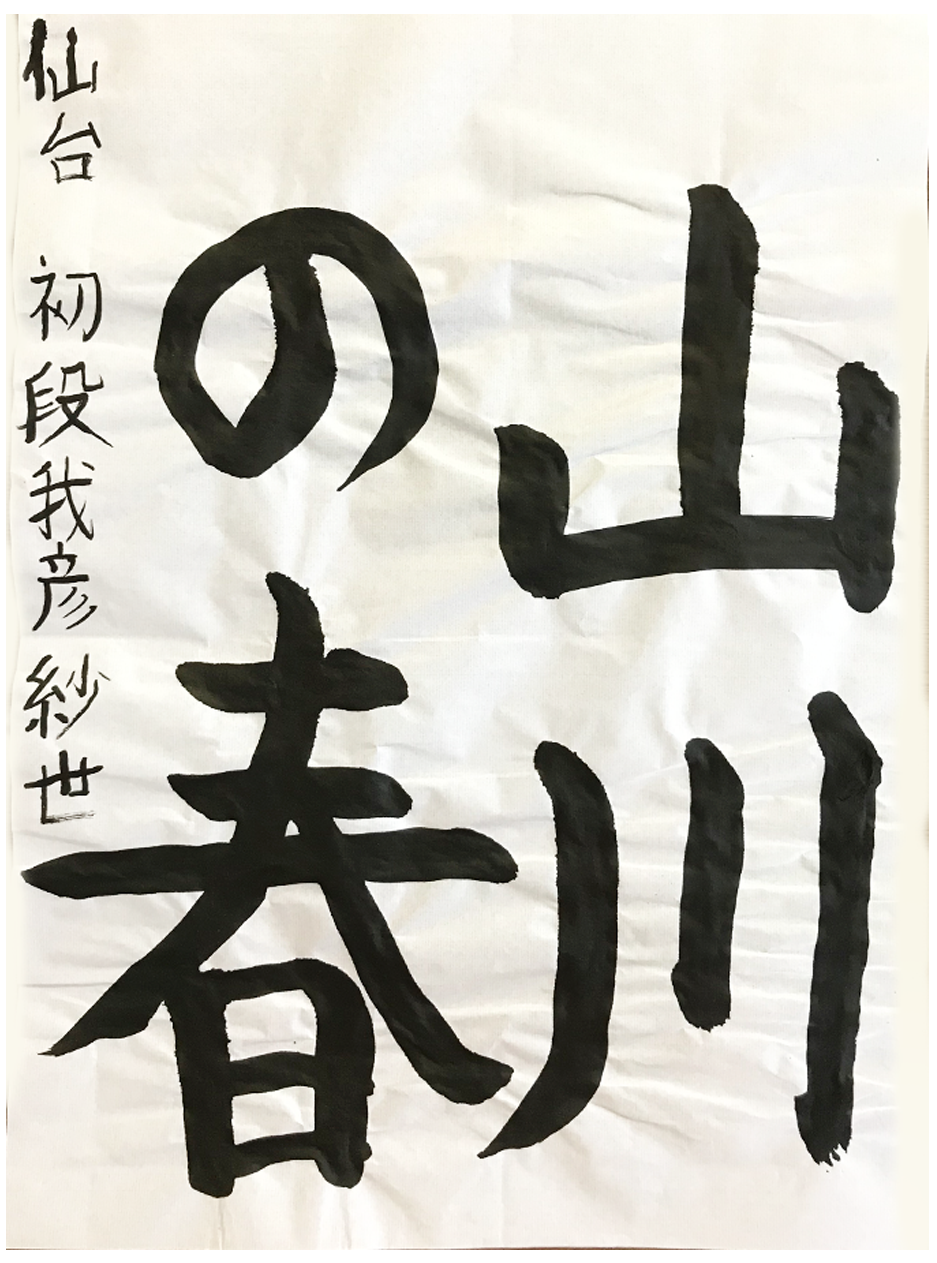 山川
の春
仙台 初段 我彦 紗世